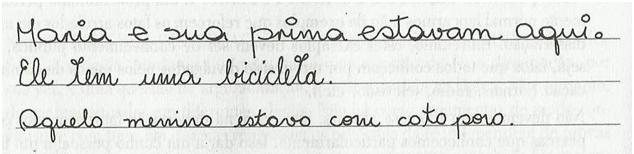 Maria e sua prima estavam aqui.
Ele tem uma bicicleta.
Aquele menino estava com catapora.